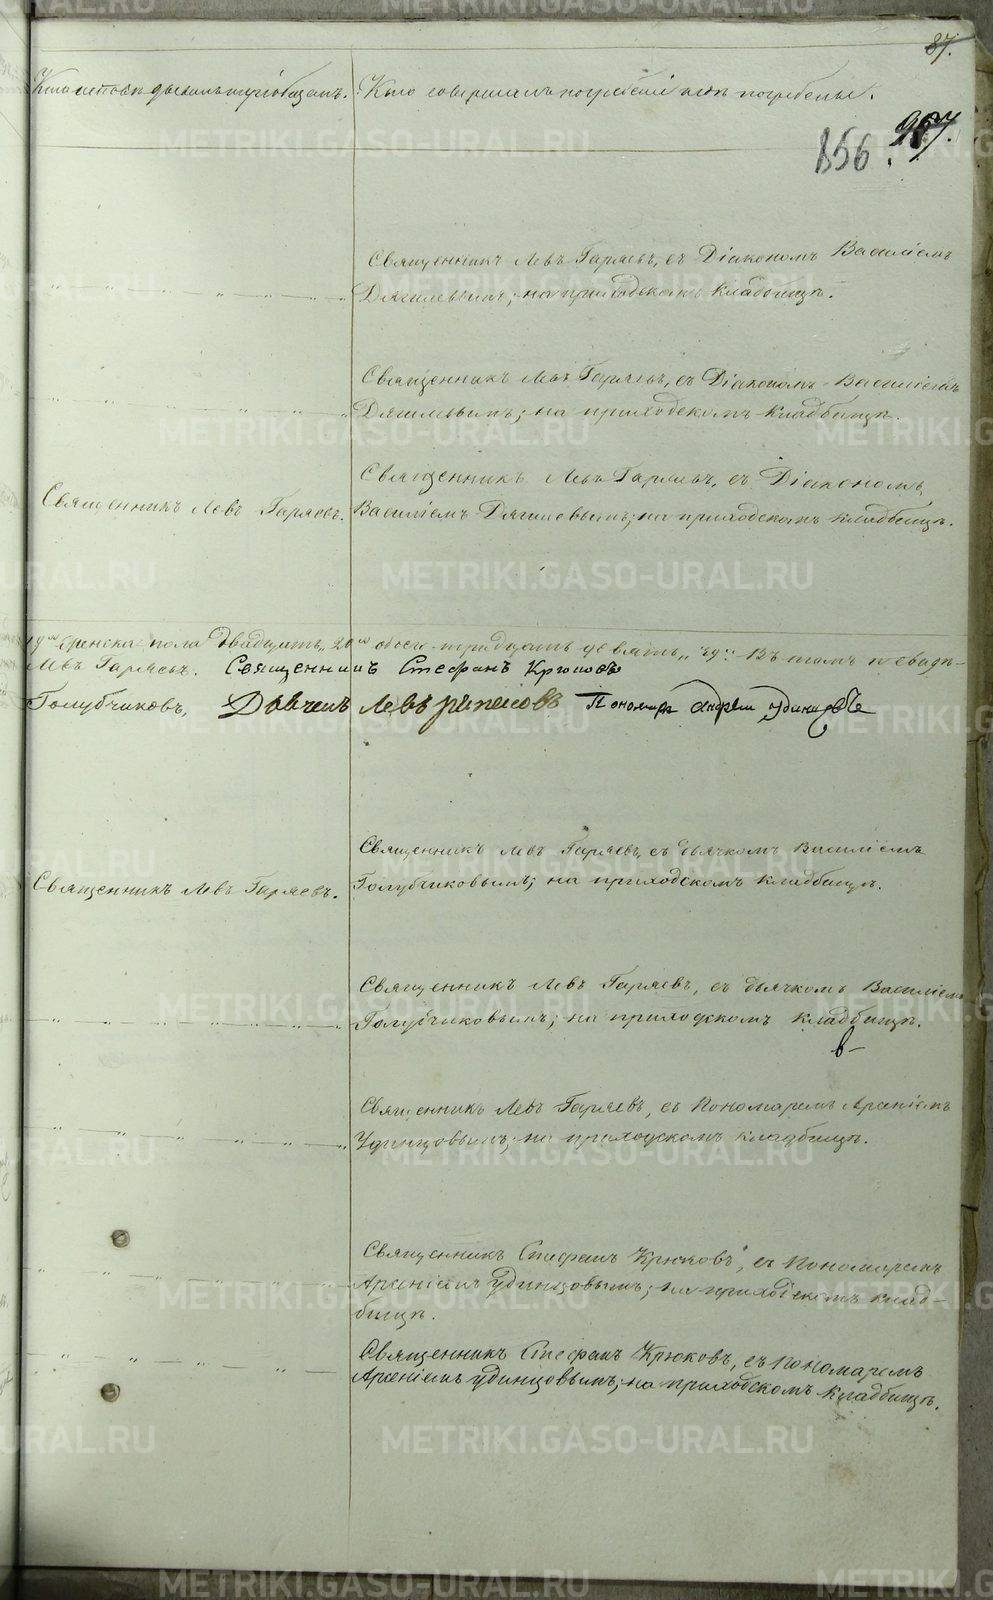 87.
Кто исповѣдывалъ и пріобщалъ.
Кто совершалъ погребеніе и гдѣ погребены.
856.
Священникъ Левъ Гаряевъ, съ Діакономъ Василіемъ
Дягилевымъ; на приходскомъ кладбищѣ.
Священникъ Левъ Гаряевъ, съ Діакономъ Василіемъ
Дягилевымъ; на приходскомъ кладбищѣ.
Священникъ Левъ Гаряевъ.
Священникъ Левъ Гаряевъ, съ Діакономъ
Василіемъ Дягилевымъ; на приходскомъ кладбищѣ.
женска пола двадцать, 20 обоего тридцать девять, "39". Въ томъ и свидѣ-
Левъ Гаряевъ. Священникъ Стефанъ Крюковъ
Голубчиковъ, Дьячекъ Левъ Пономарь Удинцовъ
Священникъ Левъ Гаряевъ.
Священникъ Левъ Гаряевъ, съ дьячкомъ Василіемъ
Голубчиковымъ; на приходскомъ кладбищѣ.
Священникъ Левъ Гаряевъ, съ дьячкомъ Василіемъ
Голубчиковымъ; на приходскомъ кладбищѣ.
Священникъ Левъ Гаряевъ, съ Пономаремъ Арсеніемъ
Удинцовымъ; на приходскомъ кладбищѣ.
Священникъ Стефанъ Крюковъ, съ Пономаремъ
Арсеніемъ Удинцовымъ; на приходскомъ клад-
бищѣ.
Священникъ Стефанъ Крюковъ, съ Пономаремъ
Арсеніемъ Удинцовымъ; на приходскомъ кладбищѣ.
METRIKI.GASO-URAL.RU